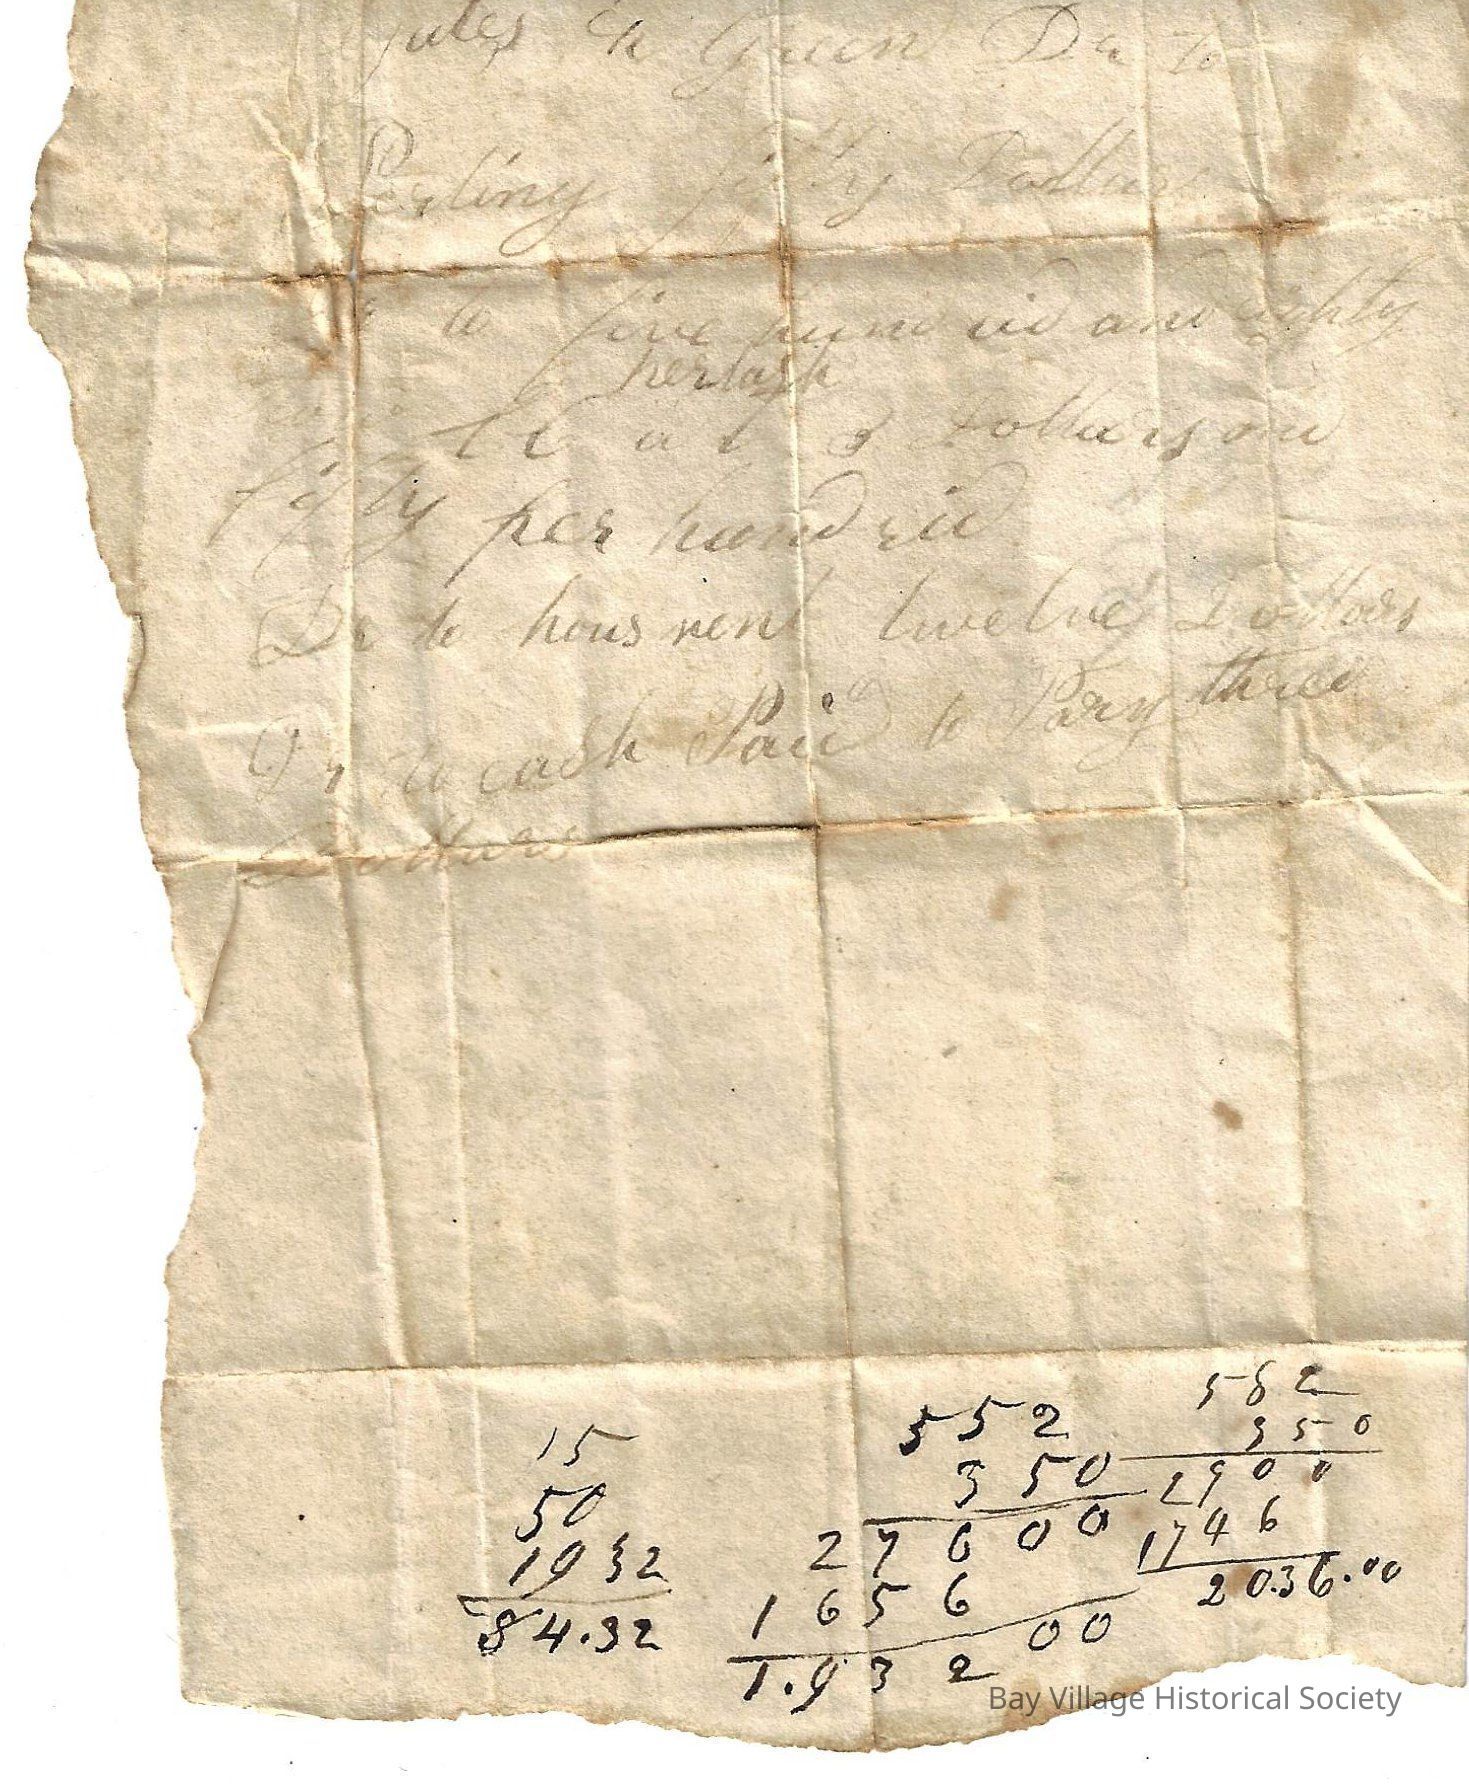 yates & Green Dr to
Perling fifty Dollars
to five hundrid and eighty
herlash
at 3 Dollars and
fifty per hundrid
Dr to hous rent twelve Dollars
Dr to cash Paid to Pery three
Dollars
15
50
1932
84.32
552
350
27600
1656
1.93200
582
350
2900
1746
2036.00
Bay Village Historical Society